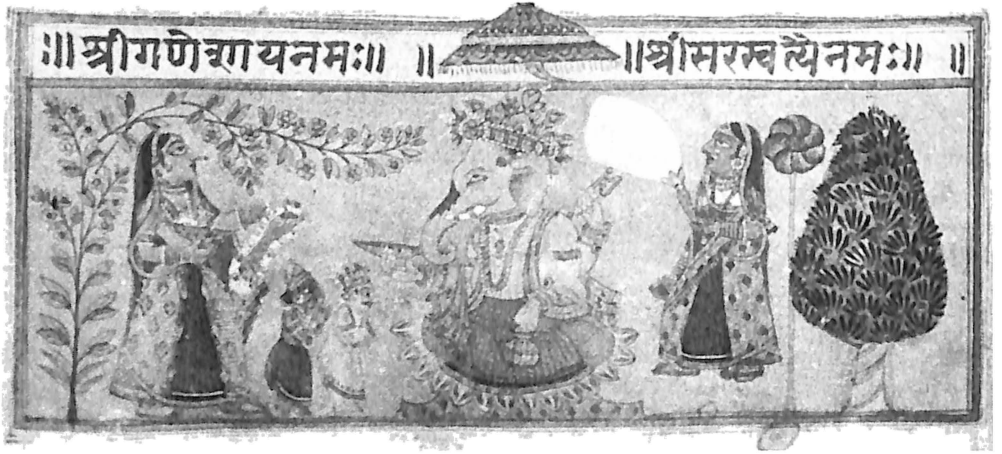 ॥श्रीगणेशायनमः॥ ॥ ॥श्रीसरस्वत्यैनमः॥ ॥